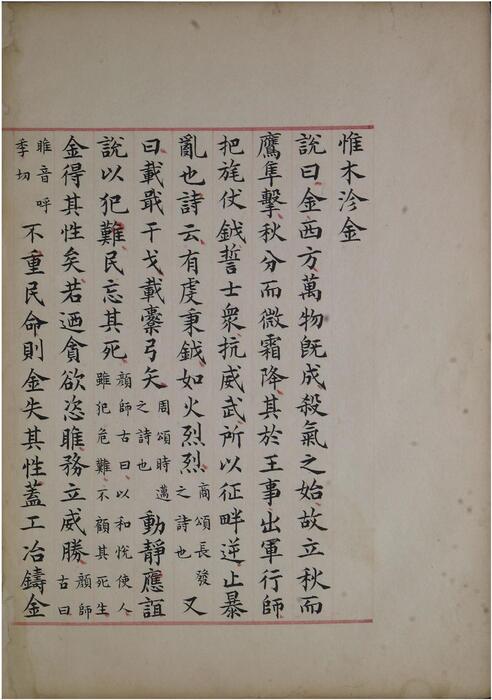 惟木沴金
說曰金西方萬物旣成殺氣之始故立秋而
鷹隼擊秋分而微霜降其於王事出軍行師
把旄仗鉞誓士衆抗威武所以征畔逆止暴
亂也詩云有虔秉鉞如火烈烈商頌長發之詩也又
曰載戢干戈載櫜弓矢周頌時邁之詩也動靜應誼
說以犯難民忘其死顏師古曰以和悅使人雖犯危難不顧其死生
金得其性矣若迺貪欲恣睢務立威勝顏師古曰
睢音呼季切不重民命則金失其性蓋工冶鑄金